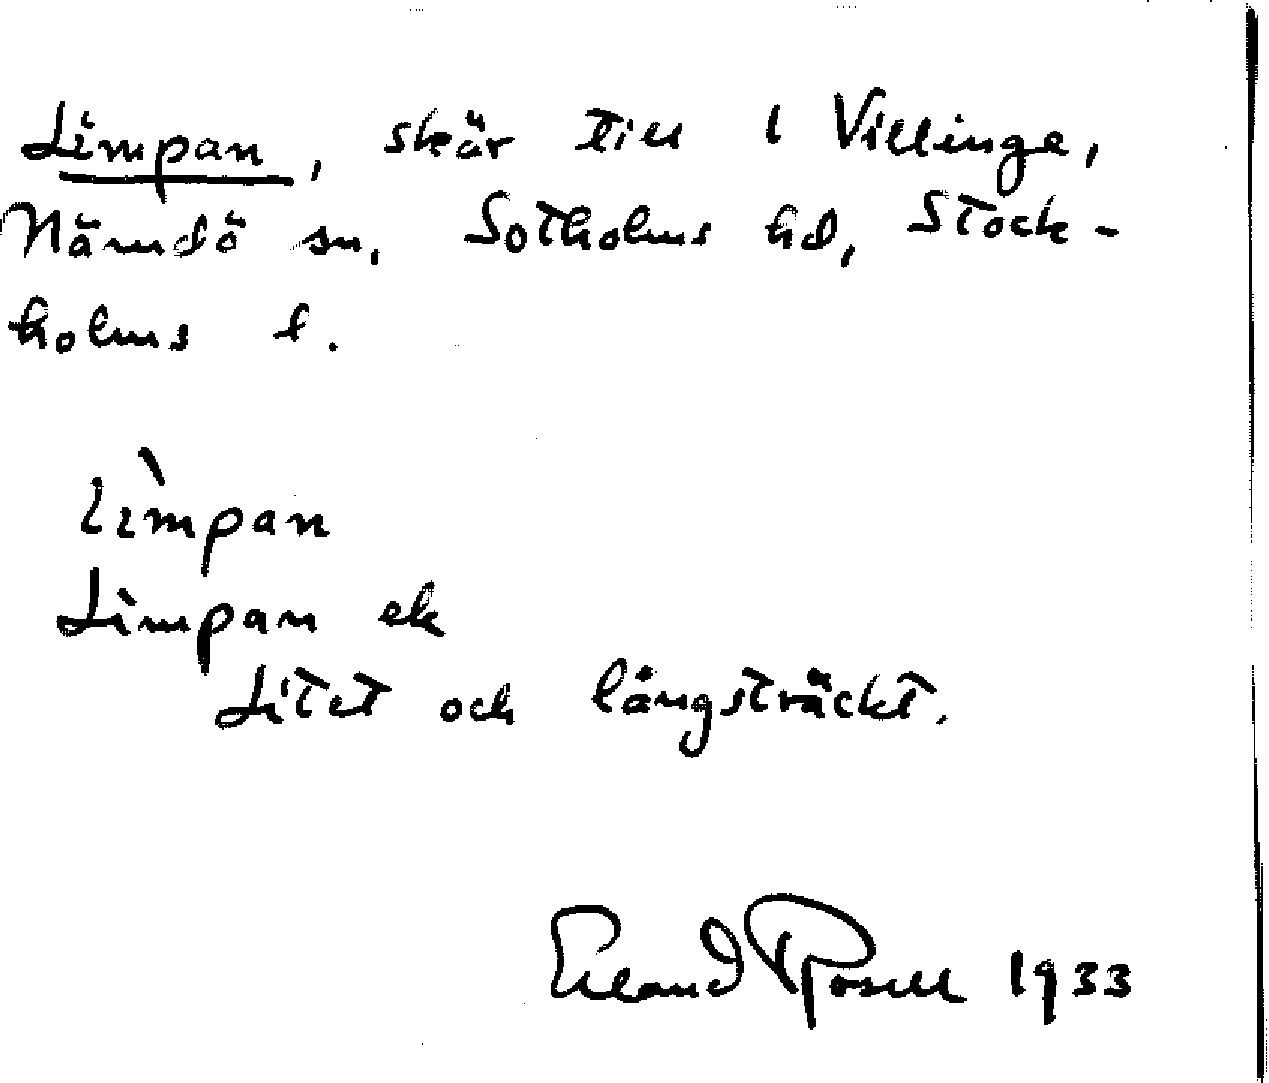 Limpan, skär till 1 Villinge,
Nämdö sn, Sotholms hd, Stock-
holms l.
lìmpan
Lìmpan ek
Litet och långsträckt.
Erland Rosell 1933